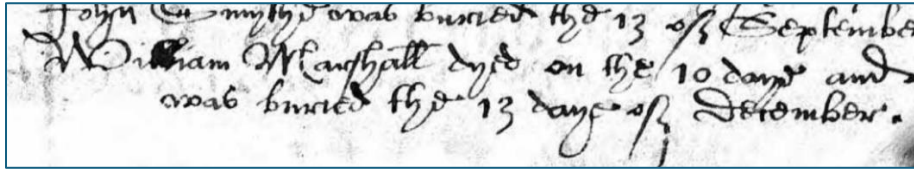 John Smythe was buried the 13 of September
William Marshall dyed on the 10 daye and
was buried the 13 daye of december.